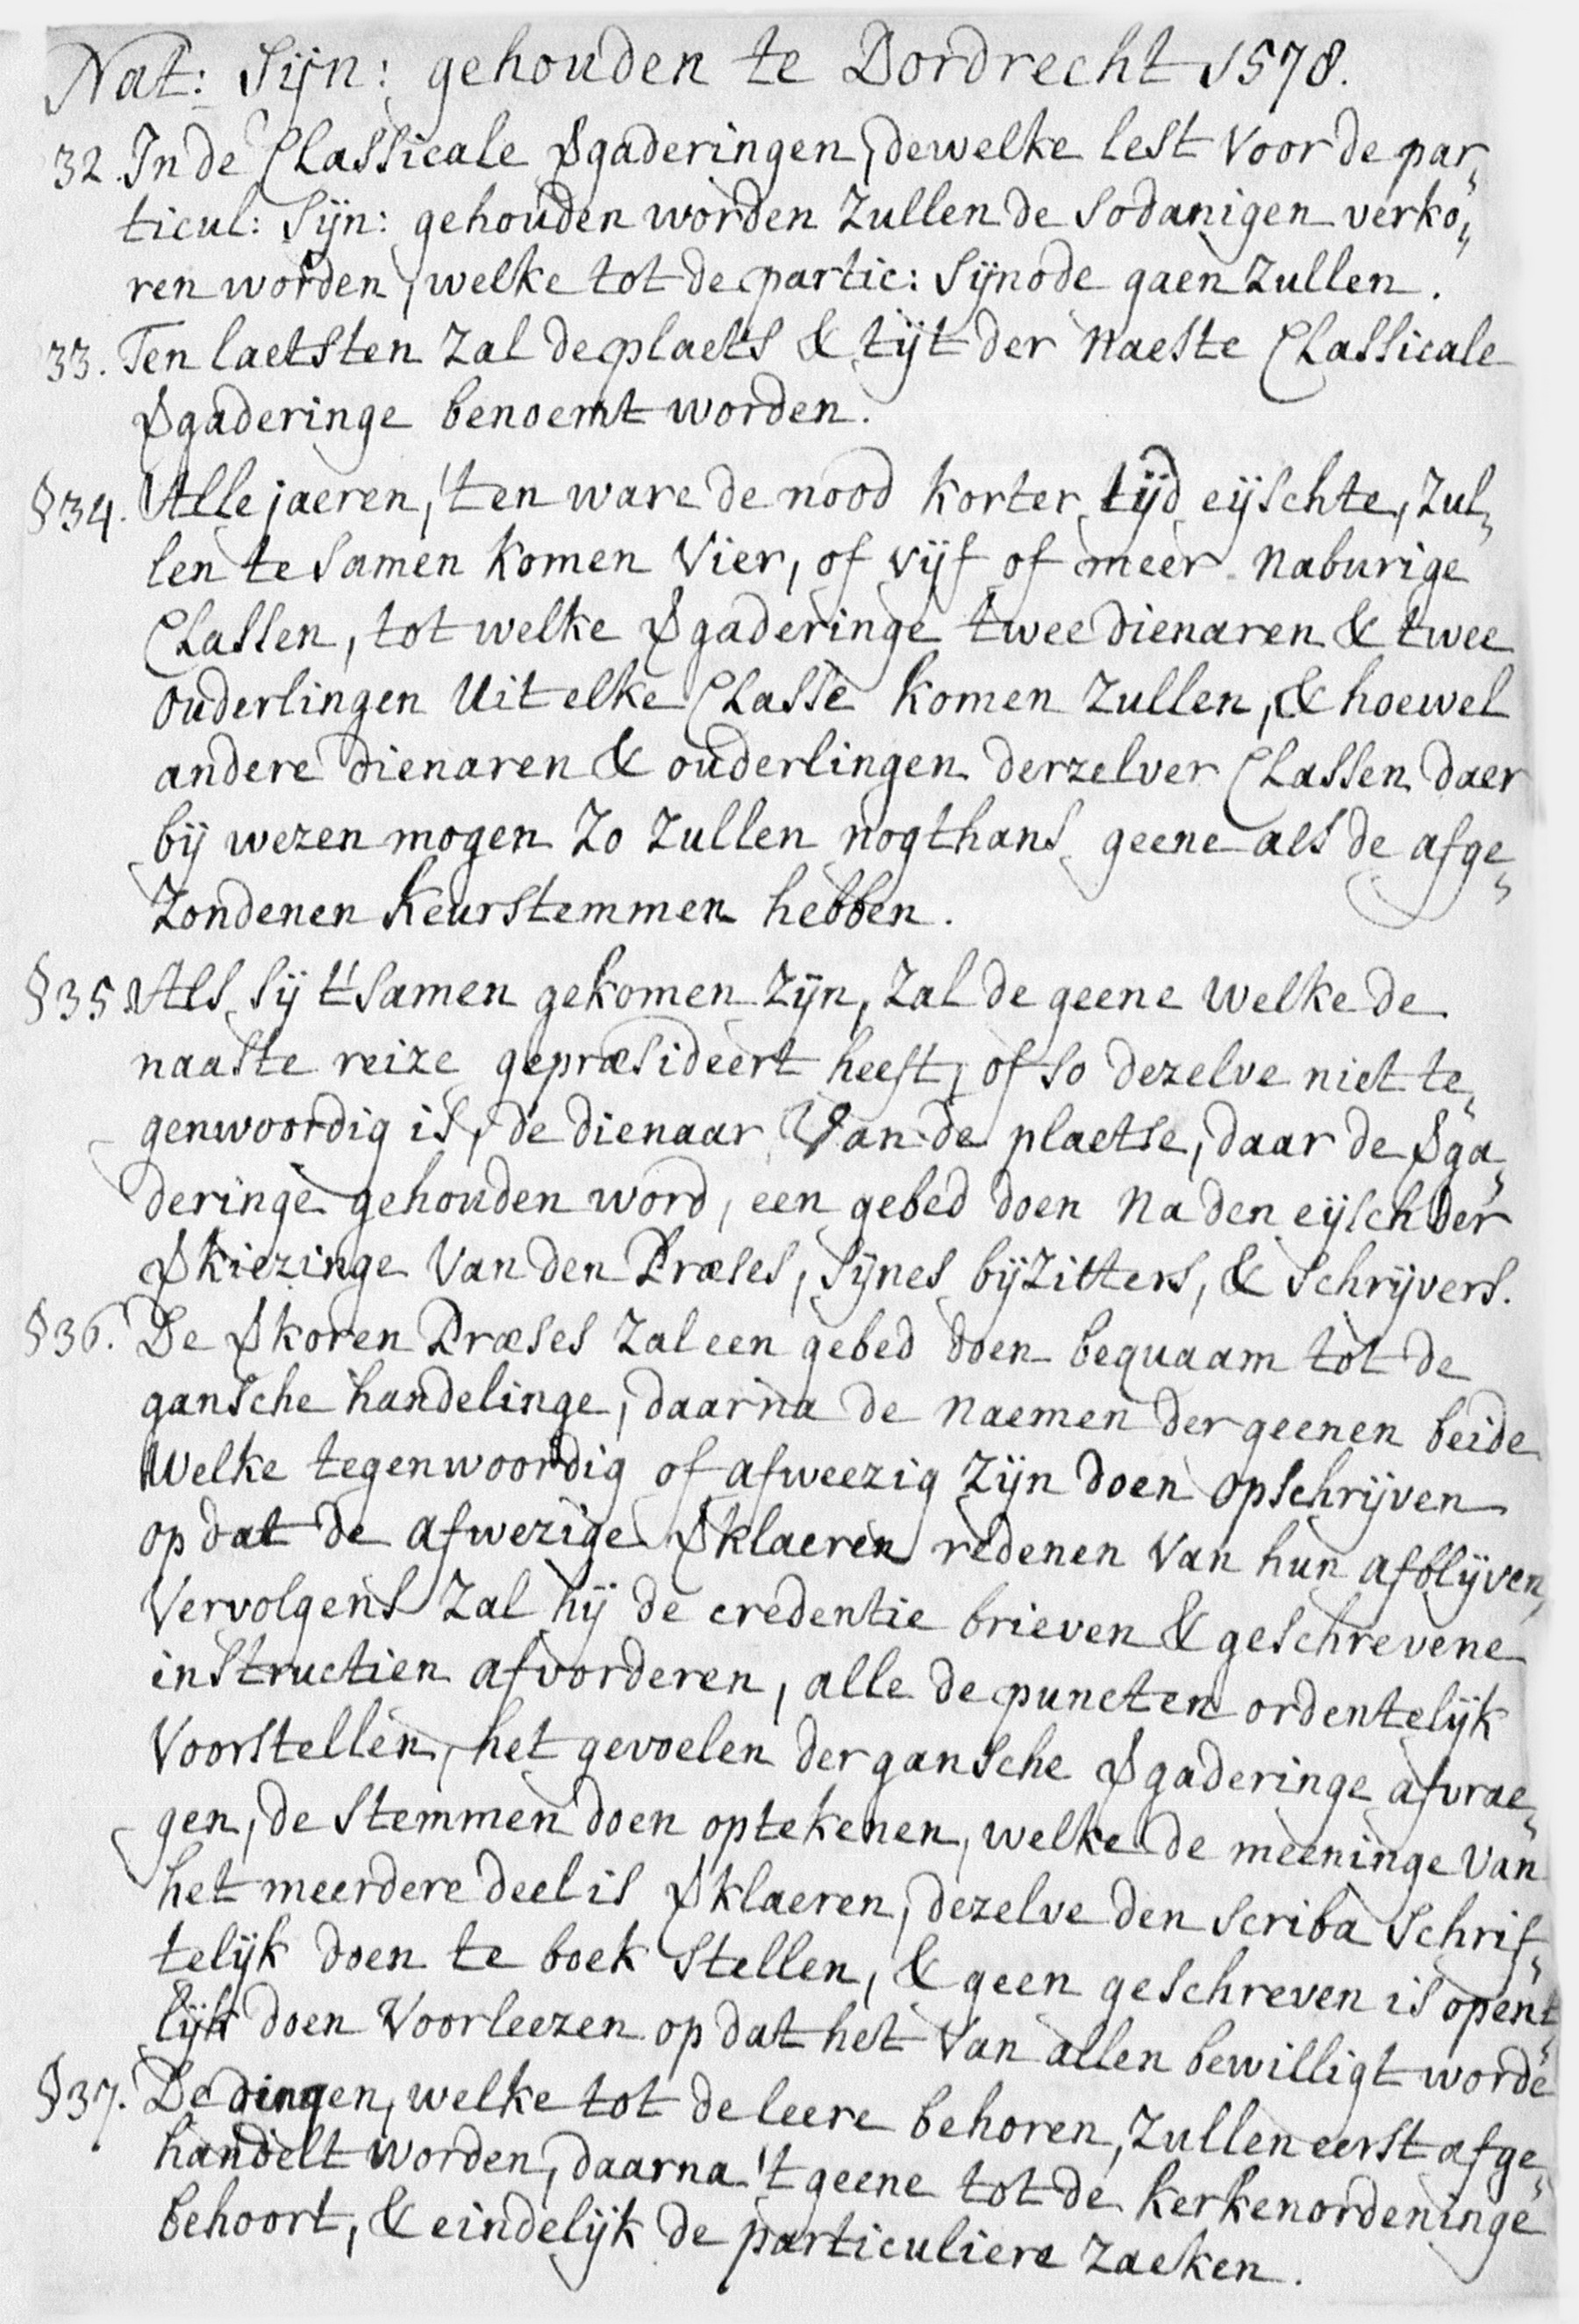 Nat: Sijn: gehouden te Dordrecht 1578.
32. In de Classicale Vgaderingen, dewelke lest voor de par„
ticul: Sijn: gehouden worden zullen de sodanigen verko„
ren worden, welke tot de partic: Sijnode gaen zullen.
33. Ten laetsten zal de plaets & tijt der naeste Classicale
Vgaderinge benoemt worden.
§34. Alle jaeren, 'ten ware de nood korter tijd eijschte, zul„
len te samen komen vier, of vijf of meer naburige
Classen, tot welke Vgaderinge twee dienaren & twee
ouderlingen uit elke Classe komen zullen, & hoewel
andere dienaren & ouderlingen derzelver Classen daer
bij wezen mogen zo zullen nogthans geene als de afge„
zondenen keurstemmen hebben.
§35 Als sij t'samen gekomen zijn, zal de geene welke de
naaste reize gepræsideert heeft, of so dezelve niet te„
genwoordig is, de dienaar van de plaetse, daar de Vga„
deringe gehouden word, een gebed doen na den eijsch der
Vkiezinge van den Præses, sijnes bijzitters, & schrijvers.
§36. De Vkoren Præses zal een gebed doen bequaam tot de
gansche handelinge, daarna de naemen der geenen beide
welke tegenwoordig of afweezig zijn doen opschrijven
op dat de afwezige Vklaeren redenen van hun afblijven,
vervolgens zal hij de credentie brieven & geschrevene
instructien afvorderen, alle de puncten ordentelijk
voorstellen, het gevoelen der gansche Vgaderinge afvrae„
gen, de stemmen doen optekenen, welke de meeninge van
het meerdere deel is Vklaeren, dezelve den scriba schrif„
telijk doen te boek stellen, & geen geschreven is opent„
lijk doen voorleezen op dat het van allen bewilligt worde
§37. De dingen, welke tot de leere behoren, zullen eerst afge„
handelt worden, daarna 't geene tot de kerkenordeninge
behoort, & eindelijk de particuliere zaeken.